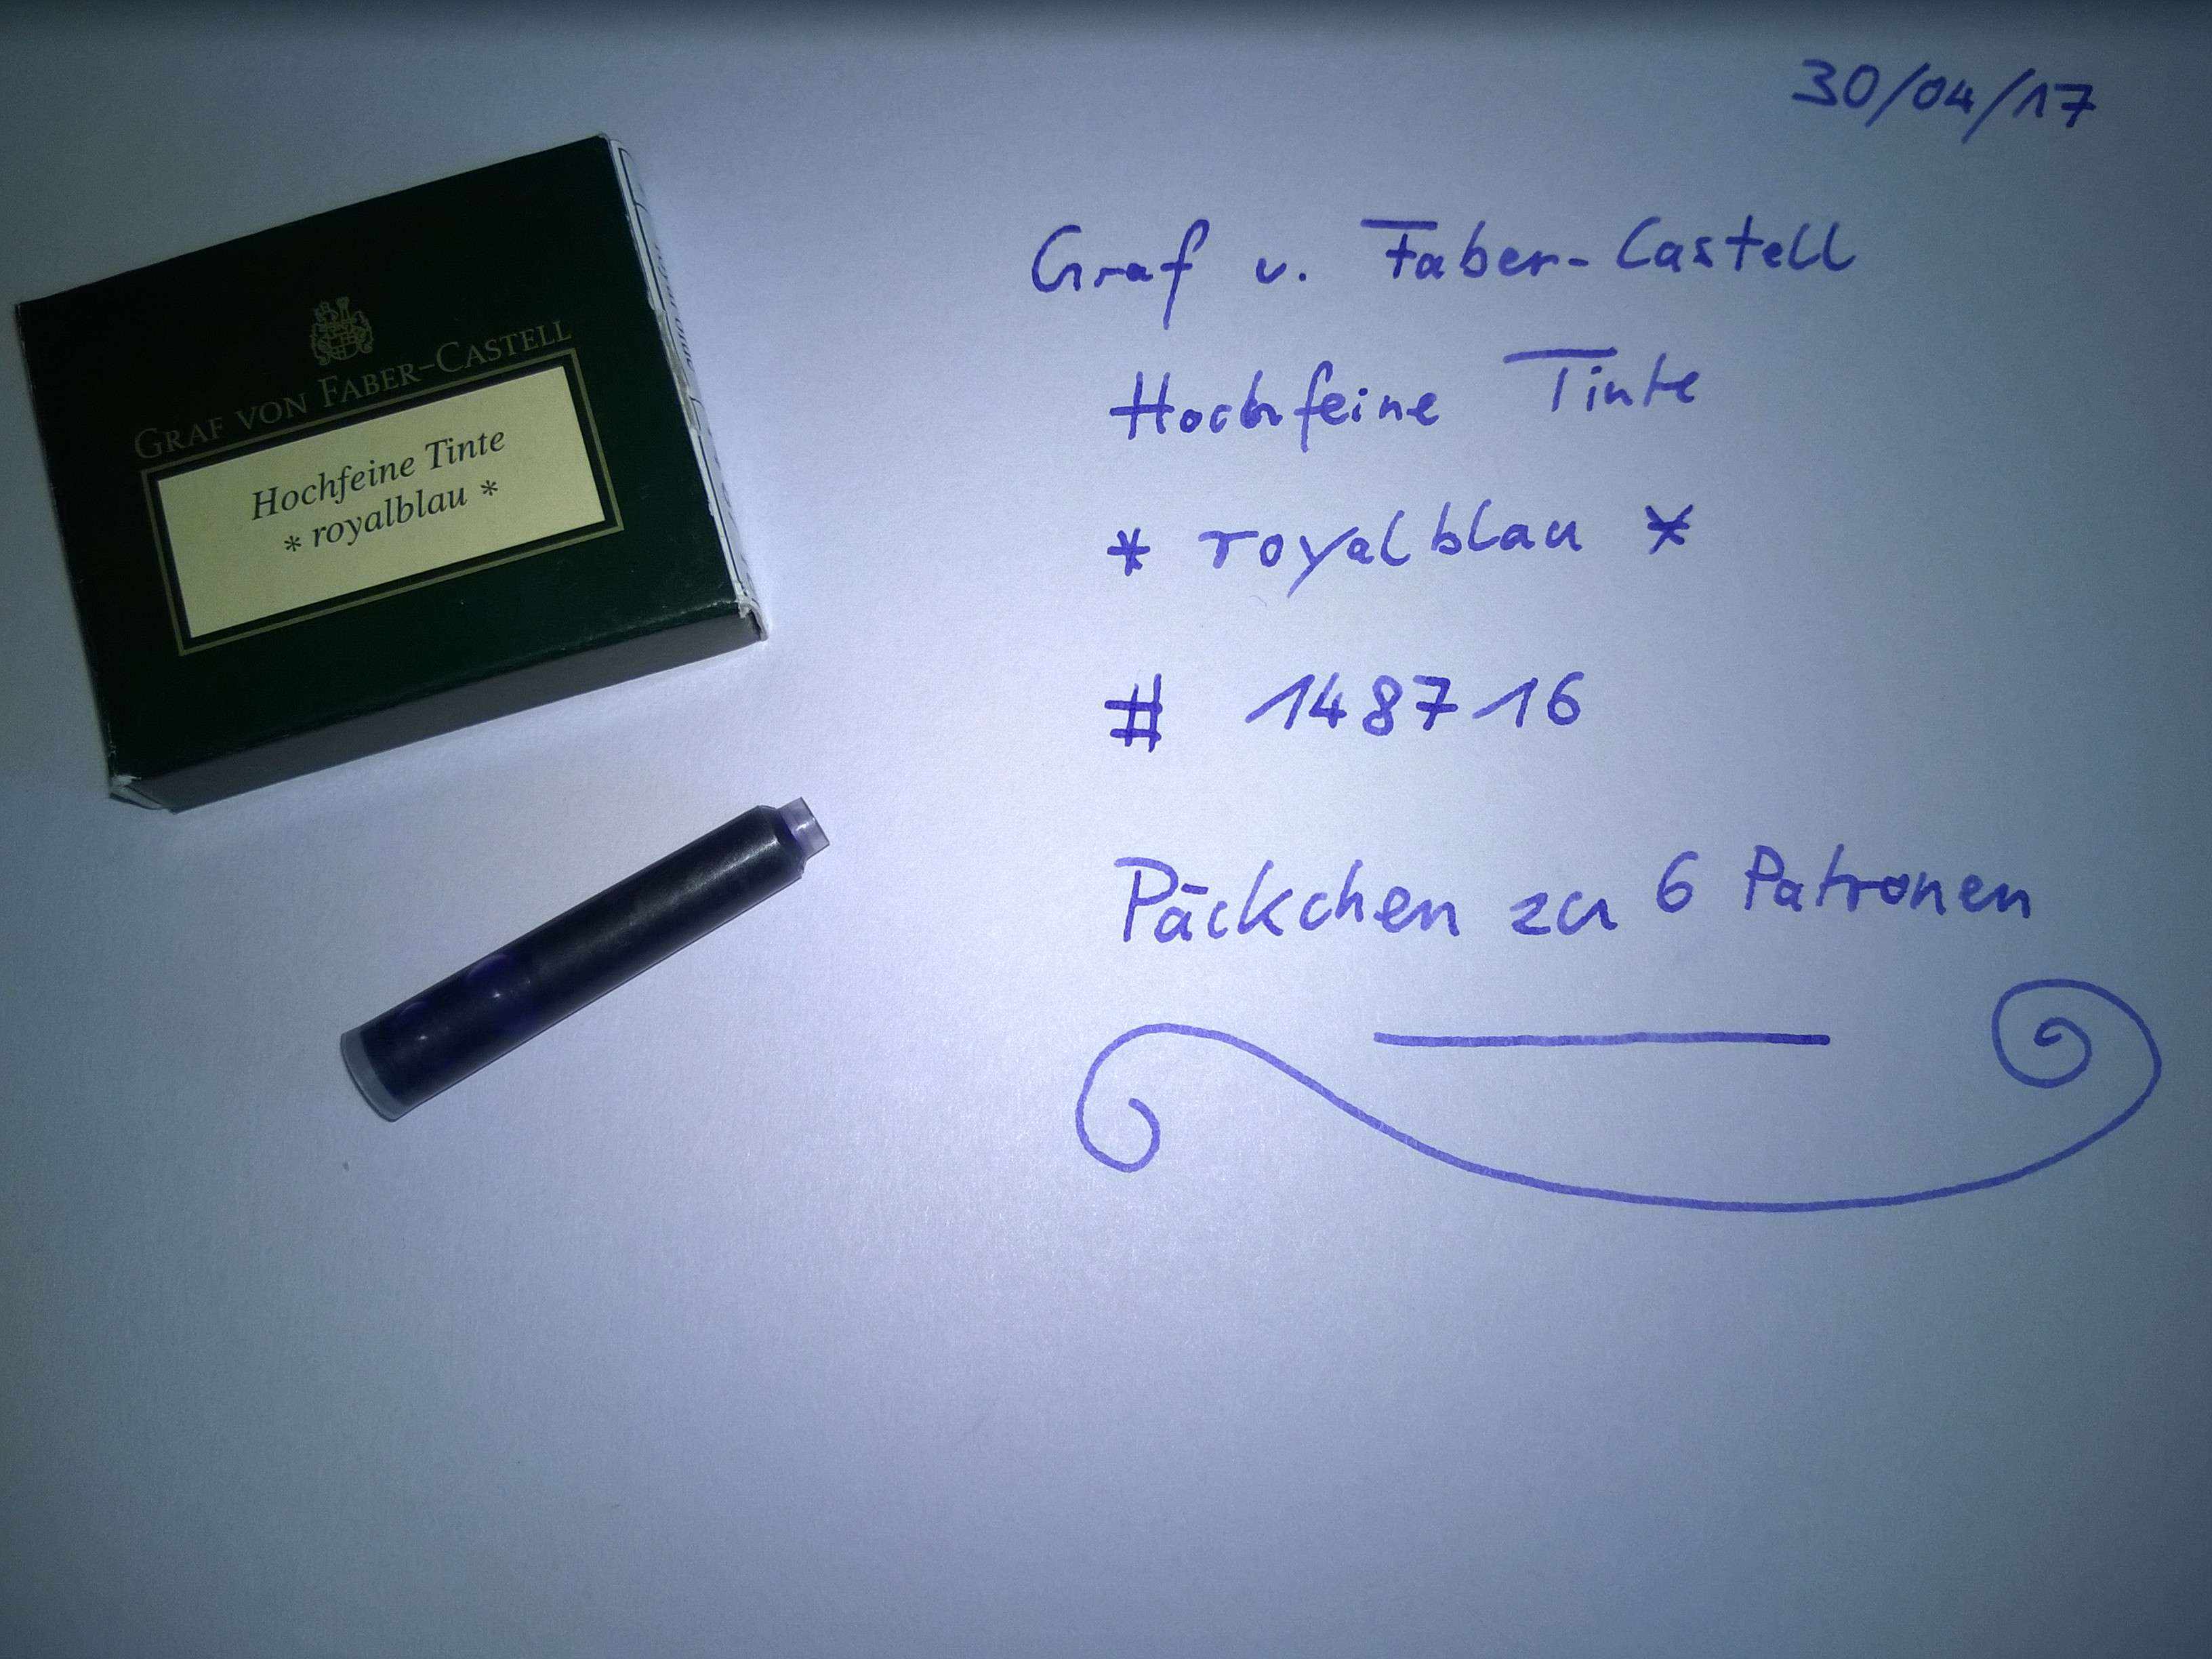 30/04/17
GRAF VON FABER-CASTELL
Hochfeine Tinte
* royalblau *
Graf v. Faber-Castell
Hochfeine Tinte
* royalblau *
# 148716
Päckchen zu 6 Patronen